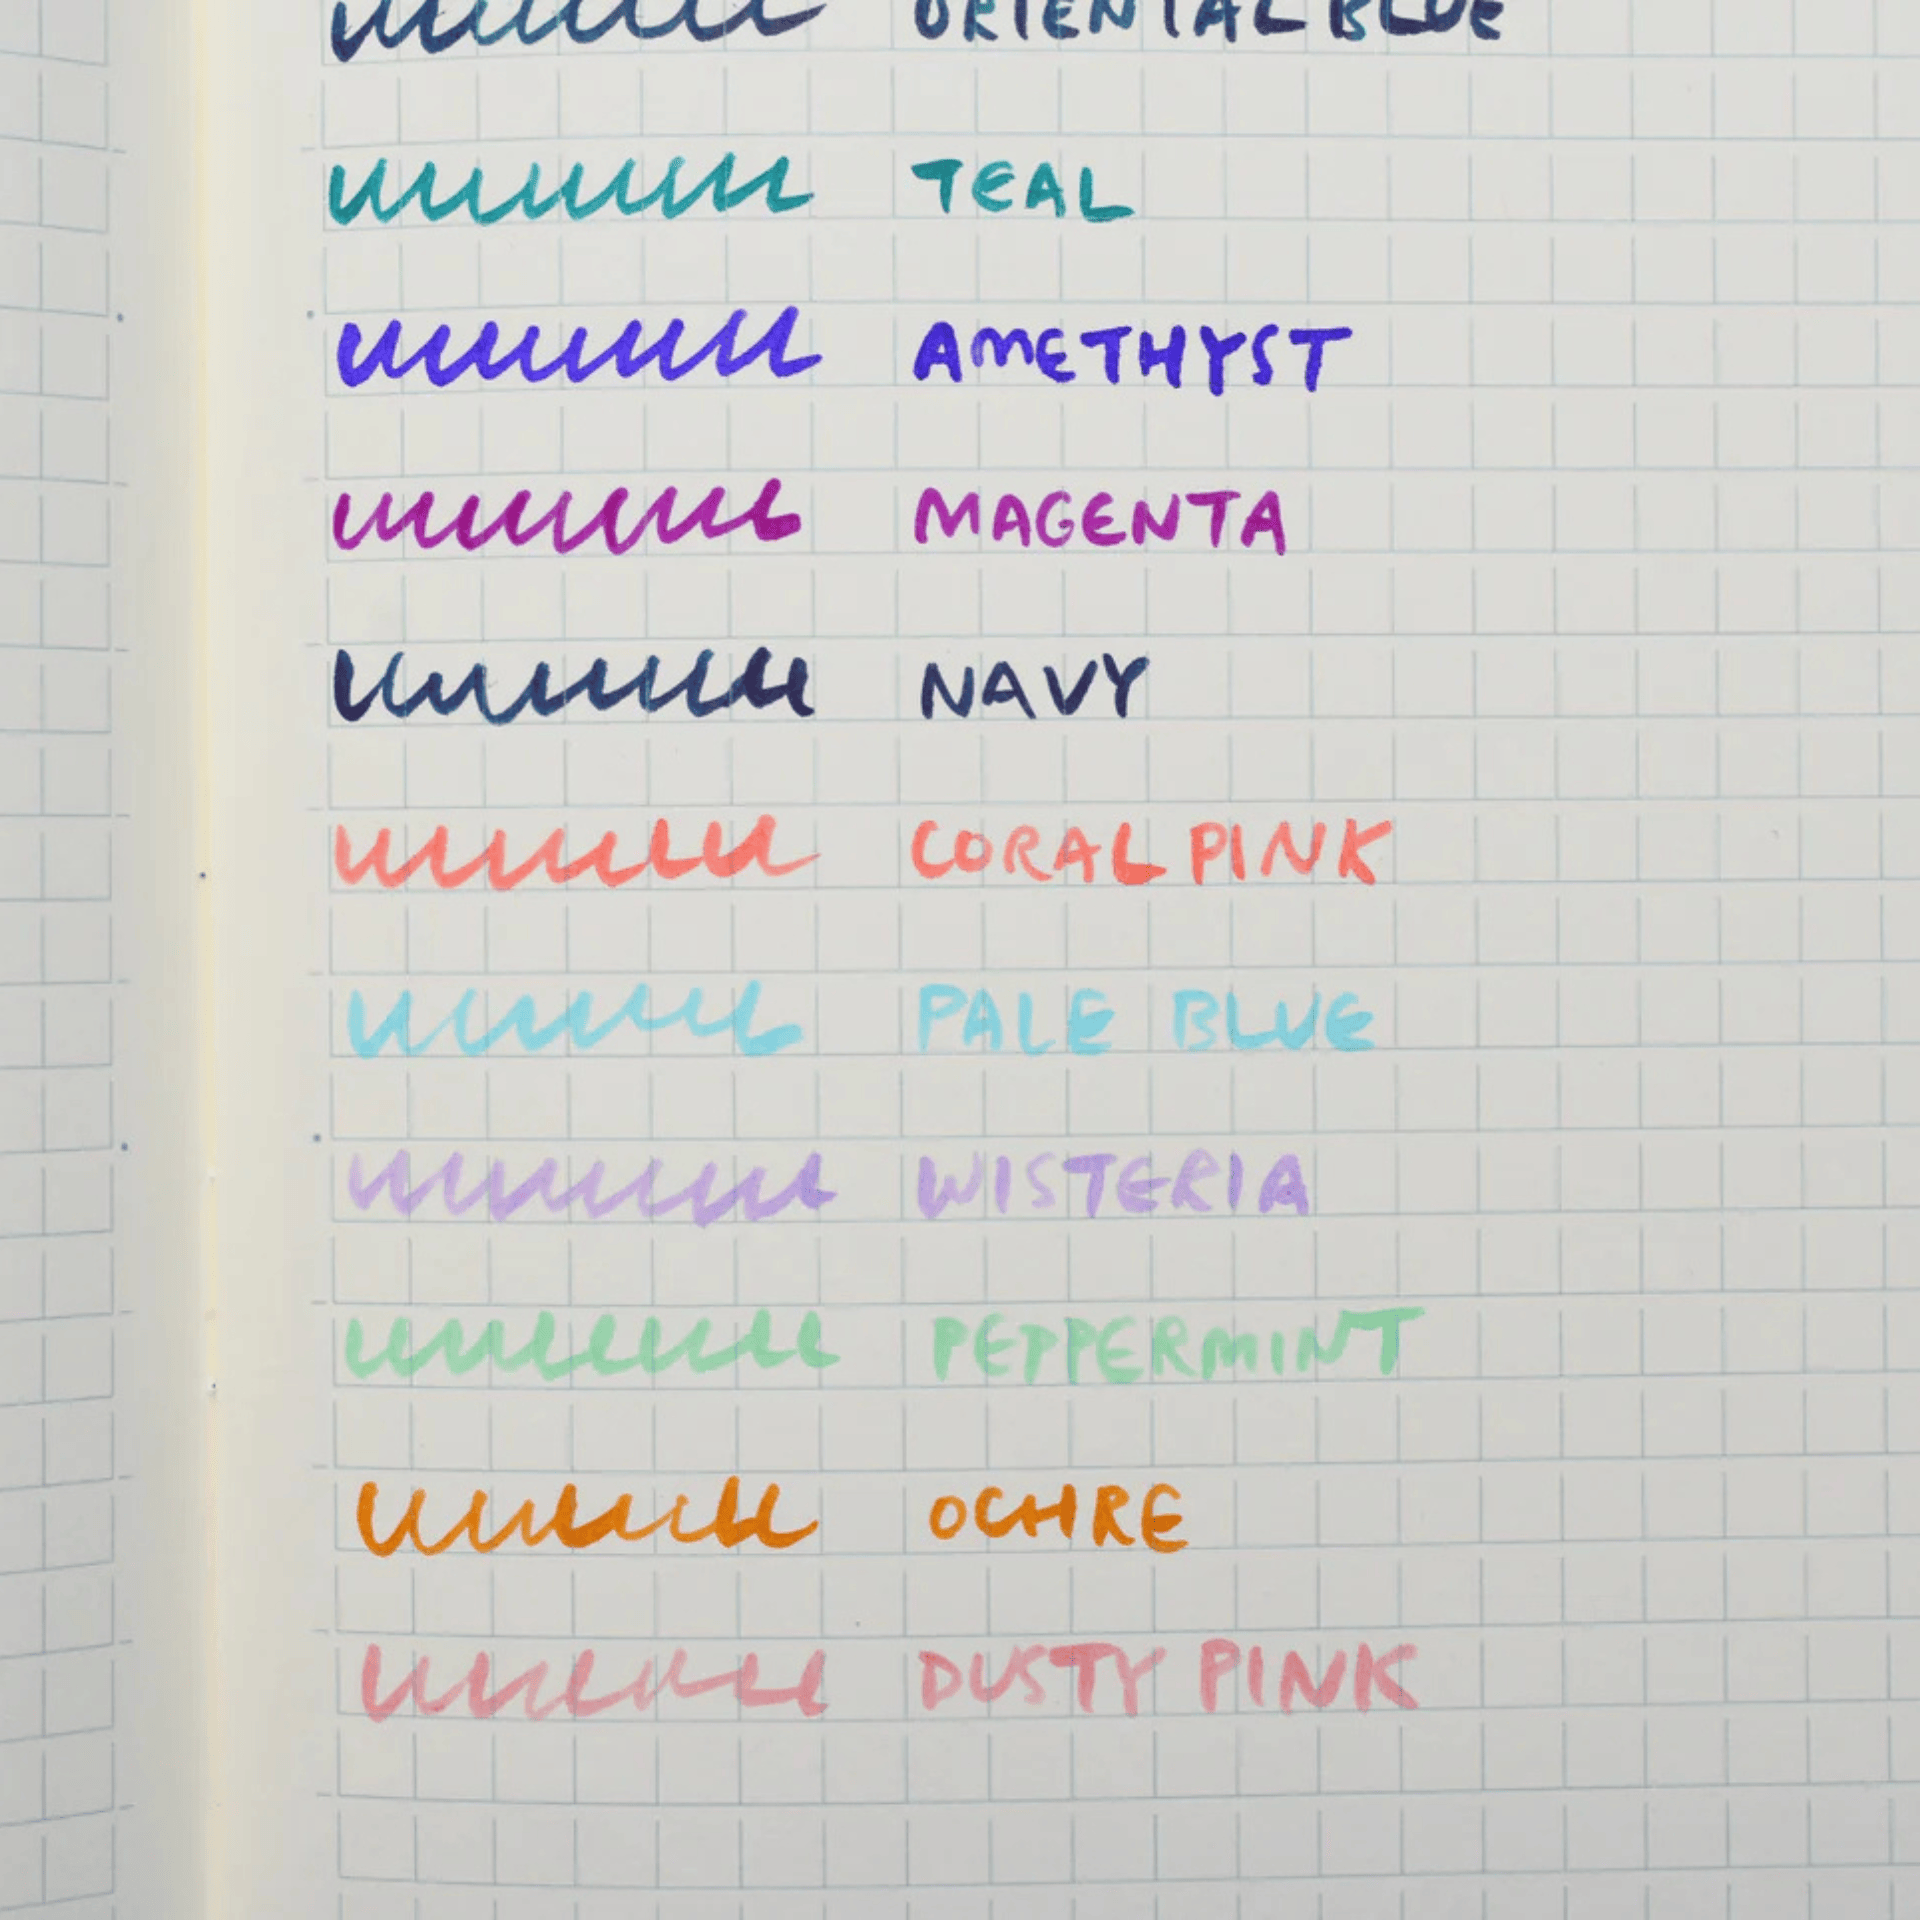 ORIENTAL BLUE
TEAL
AMETHYST
MAGENTA
NAVY
CORAL PINK
PALE BLUE
WISTERIA
PEPPERMINT
OCHRE
DUSTY PINK